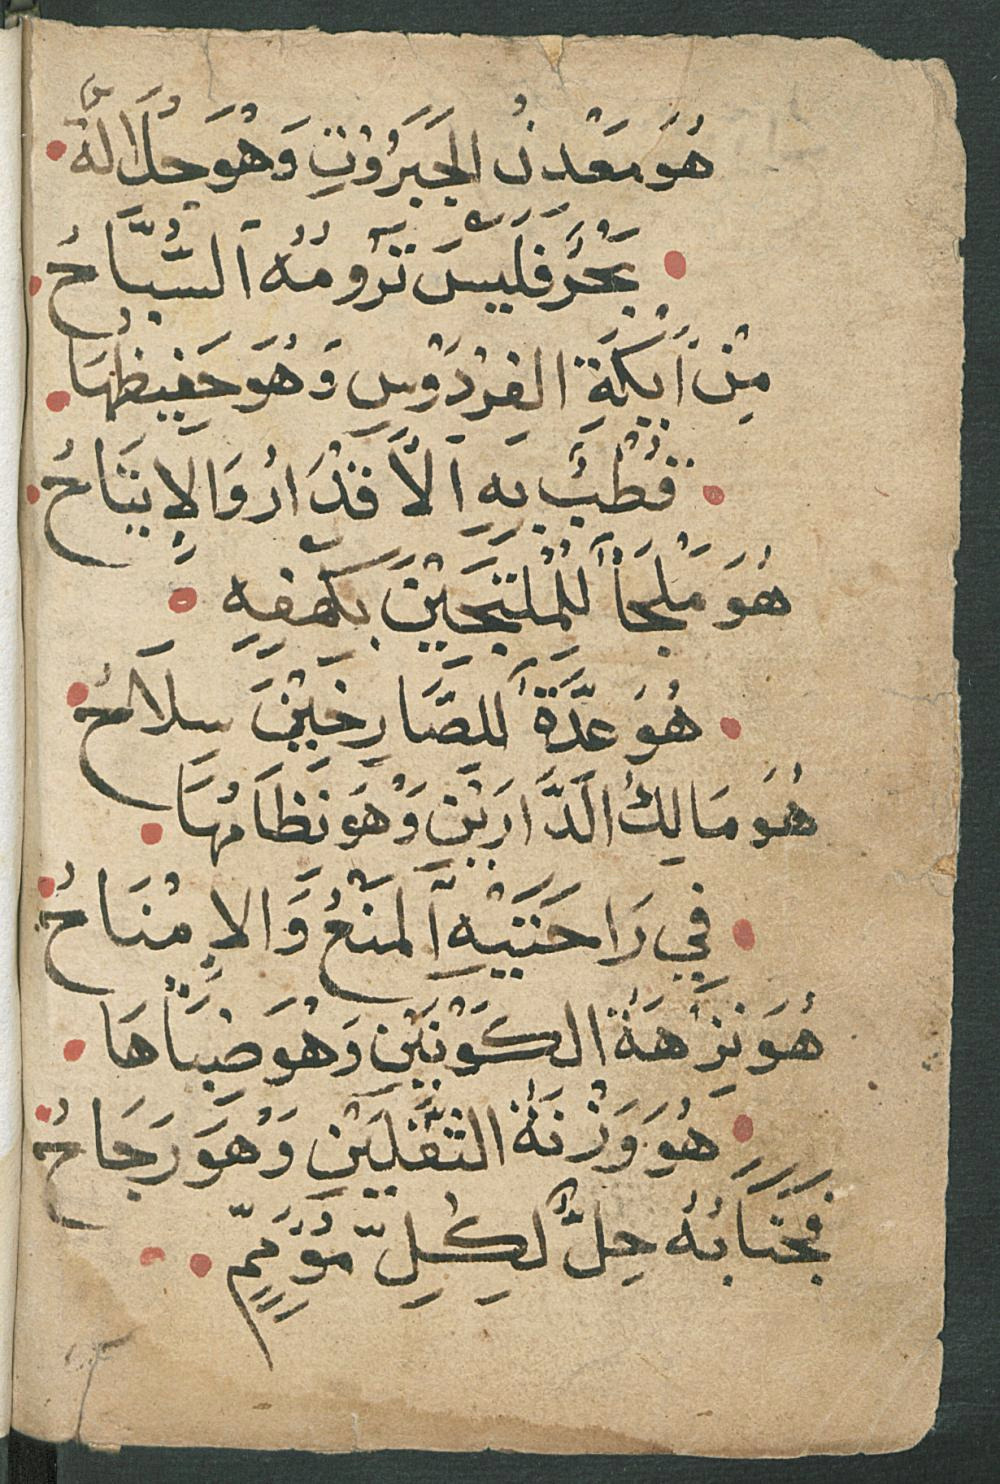 هُوَ مَعْدِنُ الجَبَرُوْتِ وَهْوَ جُلَالَهُ
بَحْرٌ فَلَيْسَ تَرُومُهُ السُّبَّاحُ
مِنْ أَيْكَةِ الفِرْدَوْسِ وَهُوَ حَفِيظُهَا
قُطْبٌ بِهِ الأَقْدَارُ وَالإِيتَاحُ
هُوَ مَلْجَأٌ لِلْمُلْتَجِيْنَ بِكَهْفِهِ
هُوَ عُدَّةٌ لِلصَّارِخِيْنَ سِلَاحُ
هُوَ مَالِكُ الدَّارَيْنِ وَهْوَ نِظَامُهَا
فِي رَاحَتَيْهِ المَنْعُ وَالإِمْنَاحُ
هُوَ نُزْهَةُ الكَوْنَيْنِ وَهْوَ ضِيَاهَا
هُوَ وَزْنَةُ الثَّقَلَيْنِ وَهْوَ رَجَاحُ
فَجَنَابُهُ حِلٌّ لِكُلِّ مُؤَمِّمٍ